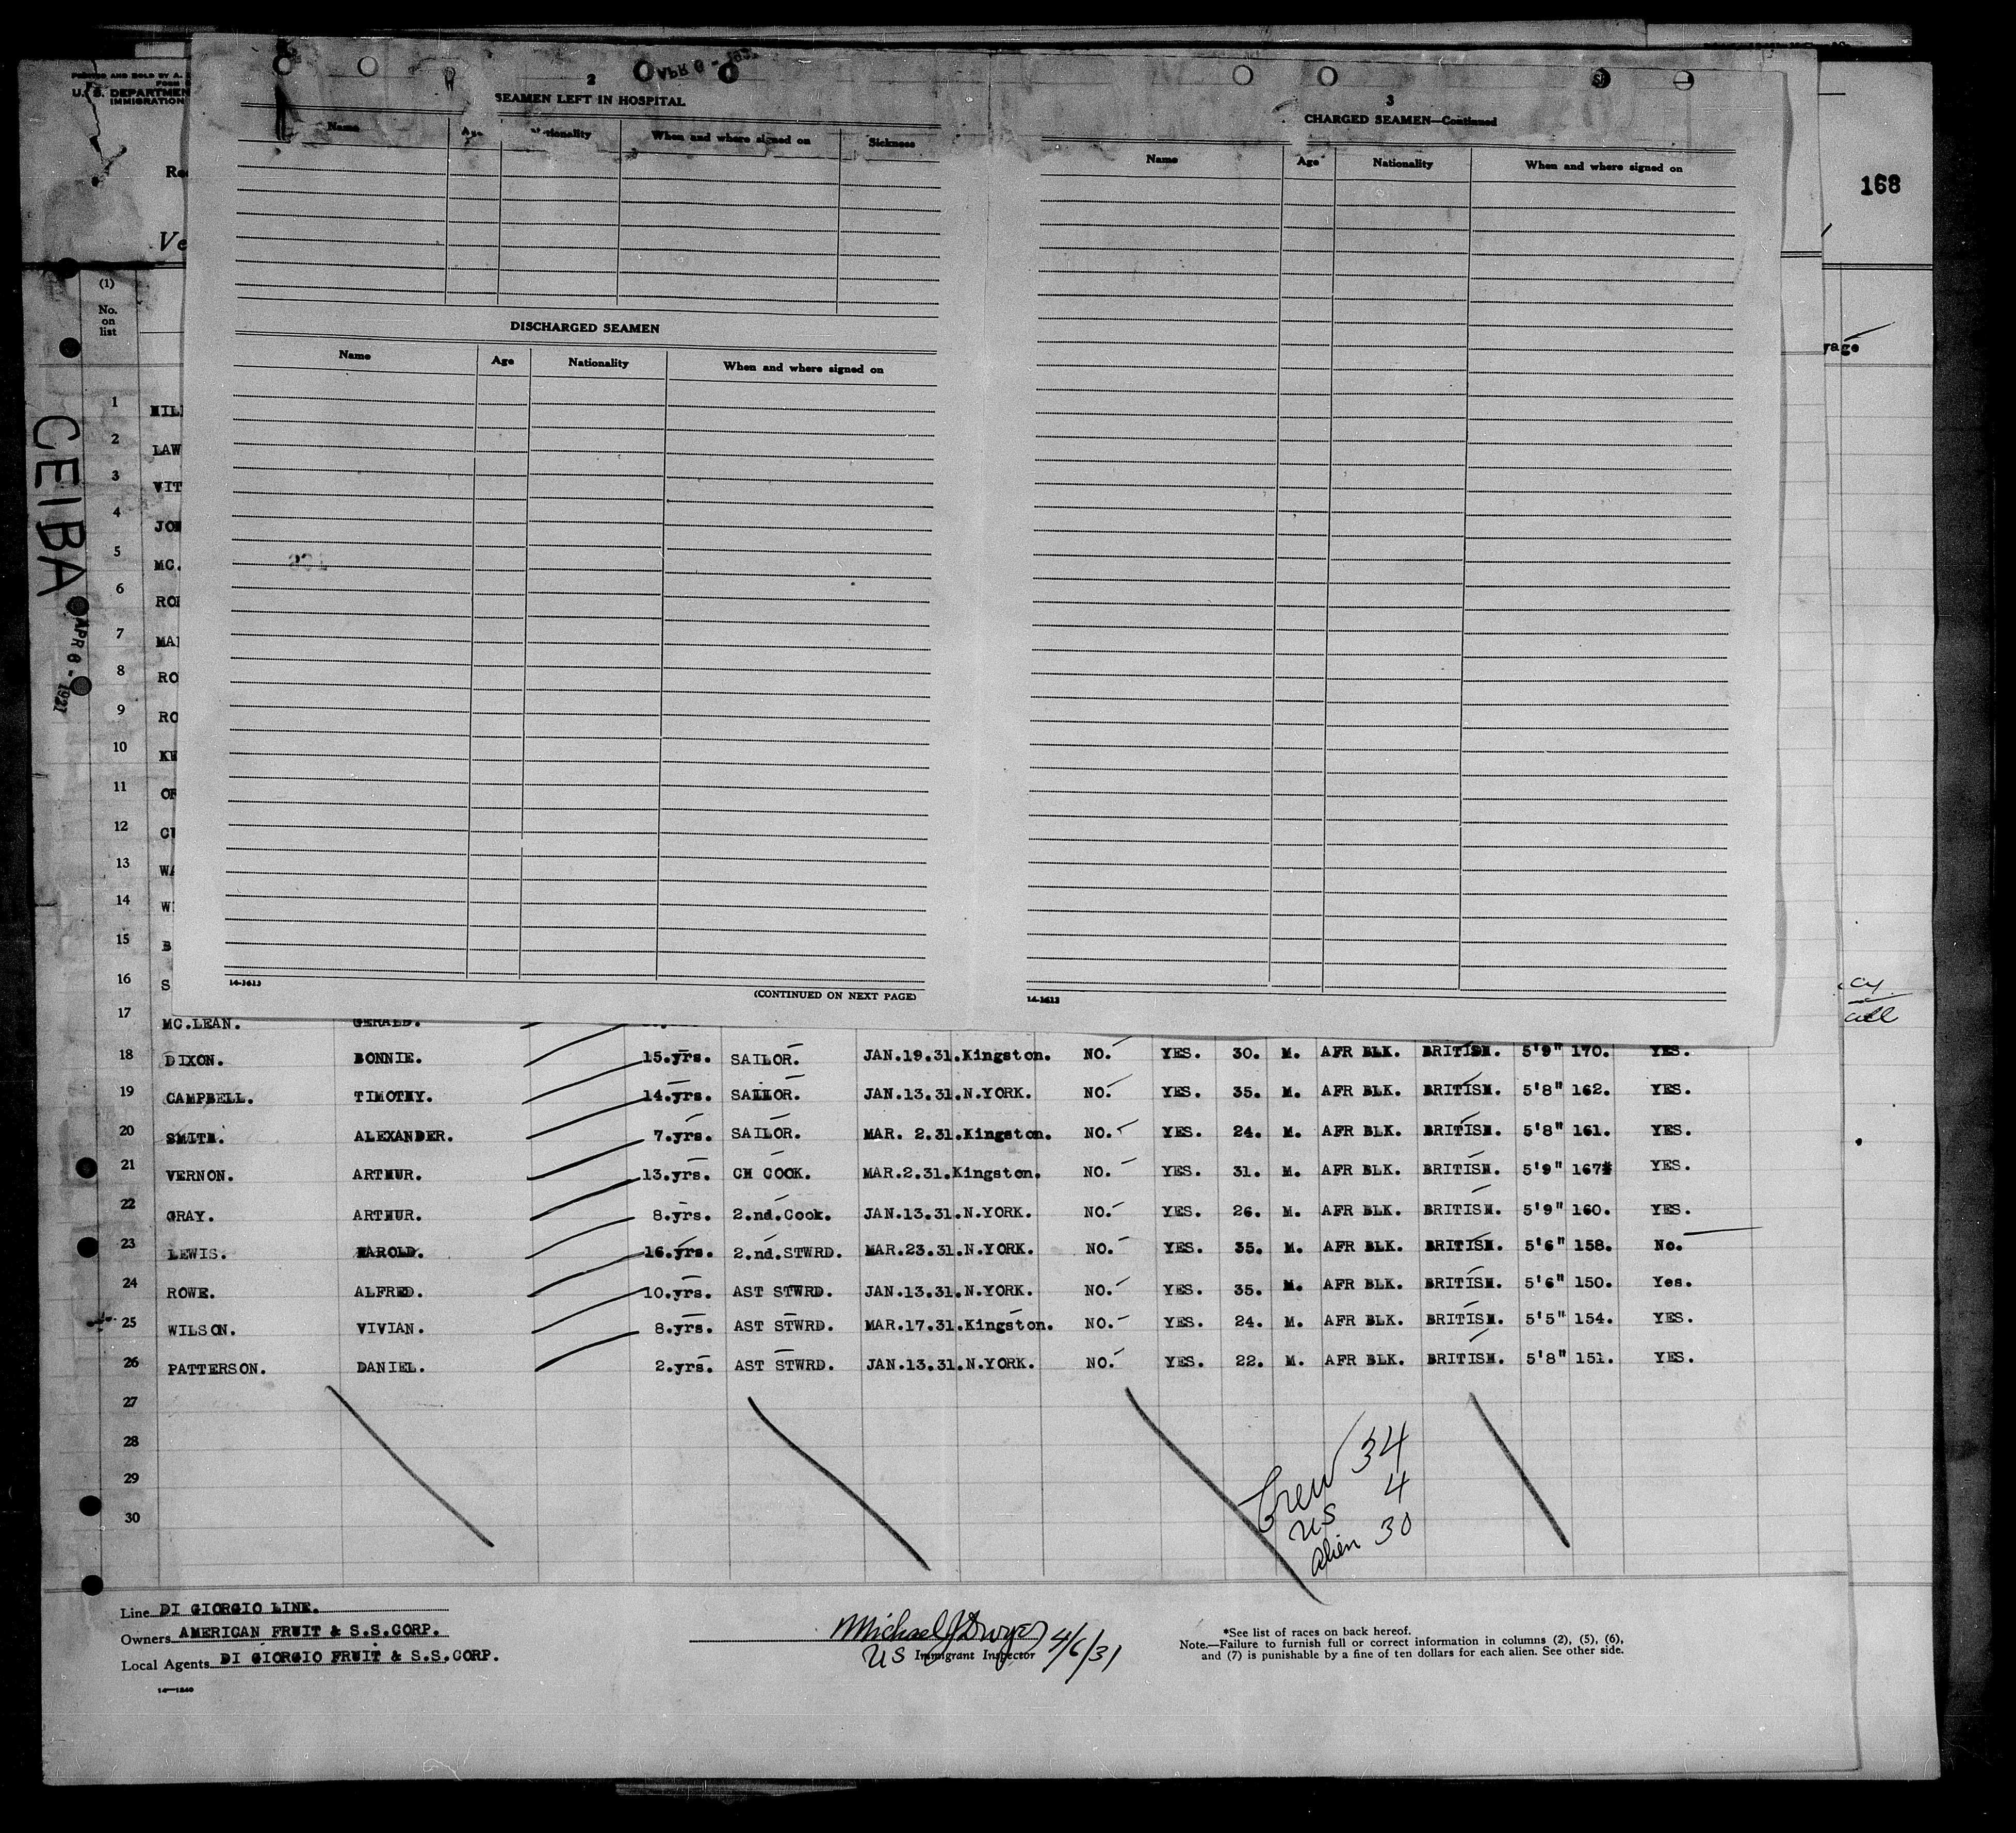 PRINTED AND SOLD BY A.
FORM
U. S. DEPARTMEN
IMMIGRATION
Ve
(1)
No.
on
list
CEIBA
APR 6 - 1931
2
SEAMEN LEFT IN HOSPITAL
Name Age Nationality When and where signed on Sickness
DISCHARGED SEAMEN
Name Age Nationality When and where signed on
14-1613
(CONTINUED ON NEXT PAGE)
3
CHARGED SEAMEN—Continued
Name Age Nationality When and where signed on
14-1613
168
yage
1 MIL
2 LAW
3 VIT
4 JOH
5 MC.
6 RO
7 MA
8 RO
9 RO
10 KE
11 OR
12 CU
13 WA
14 W
15 B
16 S
17 MC.LEAN. GERALD.
18 DIXON. BONNIE. 15.yrs. SAILOR. JAN.19.31.Kingston. NO. YES. 30. M. AFR BLK. BRITISH. 5'9" 170. YES.
19 CAMPBELL. TIMOTHY. 14.yrs. SAILOR. JAN.13.31.N.YORK. NO. YES. 35. M. AFR BLK. BRITISH. 5'8" 162. YES.
20 SMITH. ALEXANDER. 7.yrs. SAILOR. MAR. 2.31.Kingston. NO. YES. 24. M. AFR BLK. BRITISH. 5'8" 161. YES.
21 VERNON. ARTHUR. 13.yrs. CH COOK. MAR.2.31.Kingston. NO. YES. 31. M. AFR BLK. BRITISH. 5'9" 167 YES.
22 GRAY. ARTHUR. 8.yrs. 2.nd.Cook. JAN.13.31.N.YORK. NO. YES. 26. M. AFR BLK. BRITISH. 5'9" 160. YES.
23 LEWIS. HAROLD. 16.yrs. 2.nd.STWRD. MAR.23.31.N.YORK. NO. YES. 35. M. AFR BLK. BRITISH. 5'6" 158. No.
24 ROWE. ALFRED. 10.yrs. AST STWRD. JAN.13.31.N.YORK. NO. YES. 35. M. AFR BLK. BRITISH. 5'6" 150. Yes.
25 WILSON. VIVIAN. 8.yrs. AST STWRD. MAR.17.31.Kingston. NO. YES. 24. M. AFR BLK. BRITISH. 5'5" 154. YES.
26 PATTERSON. DANIEL. 2.yrs. AST STWRD. JAN.13.31.N.YORK. NO. YES. 22. M. AFR BLK. BRITISH. 5'8" 151. YES.
27
28
29
30
Crew 34
US 4
Alien 30
Line DI GIORGIO LINE.
Owners AMERICAN FRUIT & S.S.CORP.
Local Agents DI GIORGIO FRUIT & S.S.CORP.
14—1240
Michael J Dwyer 4/6/31
US Immigrant Inspector
*See list of races on back hereof.
Note.—Failure to furnish full or correct information in columns (2), (5), (6),
and (7) is punishable by a fine of ten dollars for each alien. See other side.